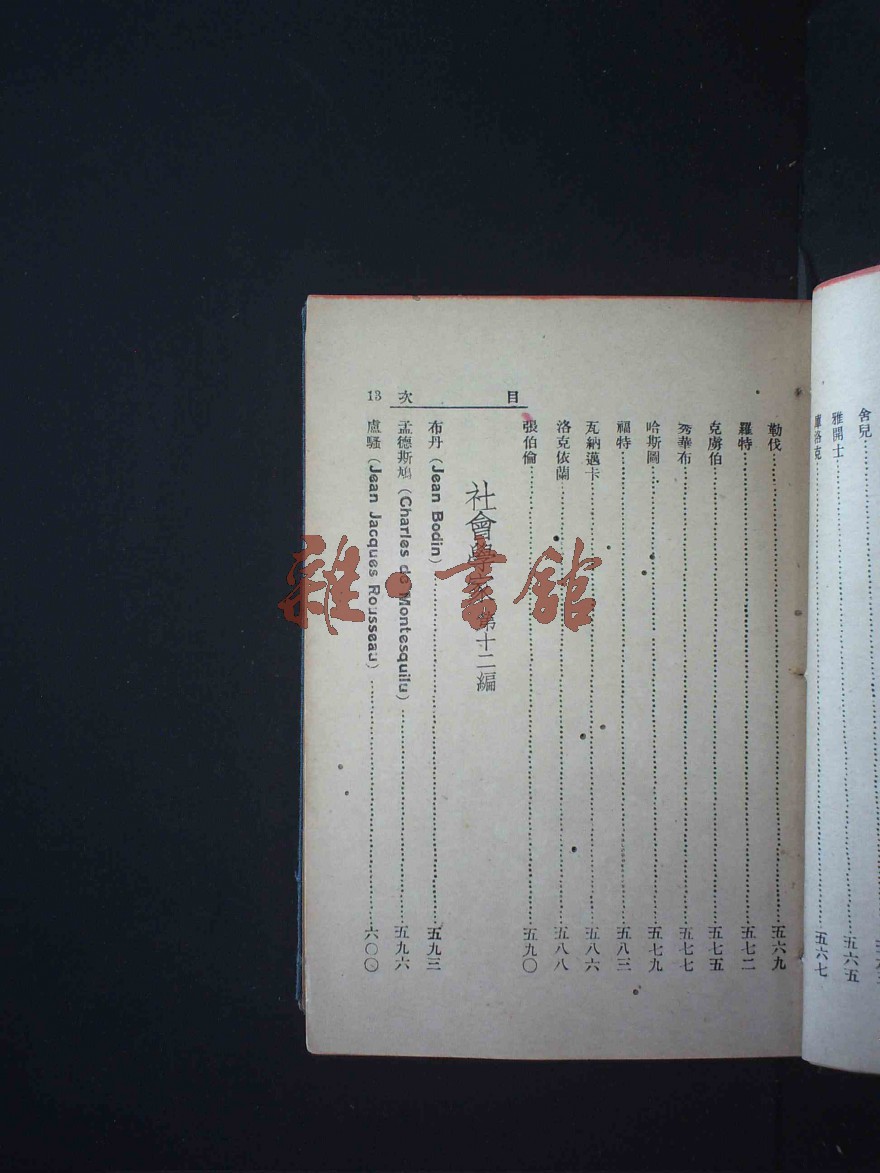 舍兒
雅開士……五六五
庫洛克……五六七
勒伐……五六九
羅特……五七二
克虜伯……五七五
秀華布……五七七
哈斯圖……五七九
福特……五八三
瓦納邁卡……五八六
洛克依蘭……五八八
張伯倫……五九〇
社會學家 第十二編
布丹(Jean Bodin)……五九三
孟德斯鳩(Charles de Montesquilu)……五九六
盧騷(Jean Jacques Rousseau)……六〇〇
目次
13
雜·書館